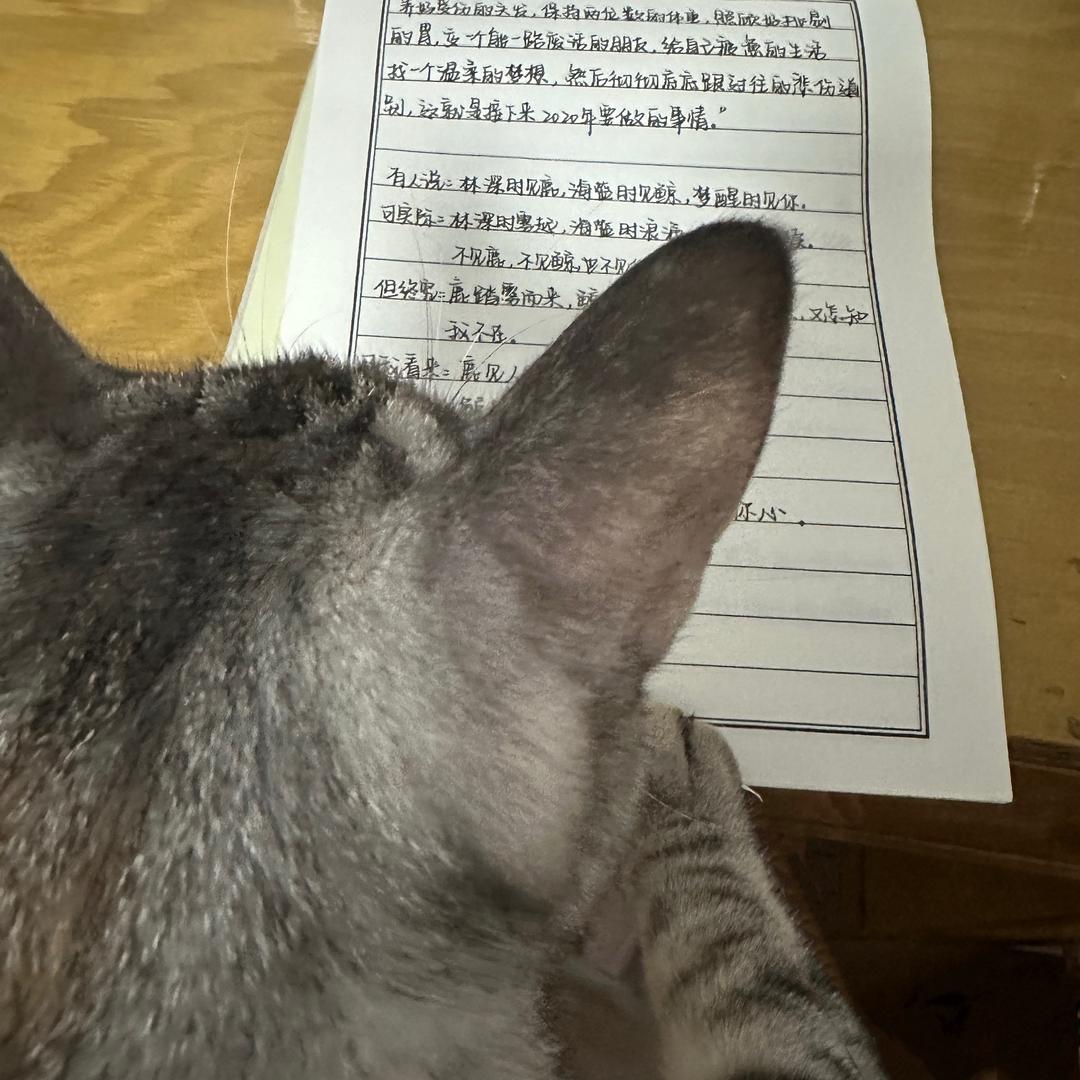 养好受伤的头发，保持两位数的体重，照顾好挑剔
的胃，交一个能一路废话的朋友，给自己疲惫的生活
找一个温柔的梦想，然后彻彻底底跟过往的悲伤道
别，这就是接下来2020年要做的事情。”
有人说：林深时见鹿，海蓝时见鲸，梦醒时见你。
可实际：林深时雾起，海蓝时浪涌
不见鹿，不见鲸，也不见
但终究：鹿踏雾而来，鲸 又怎知
我不在。
看来：鹿见人
不小。